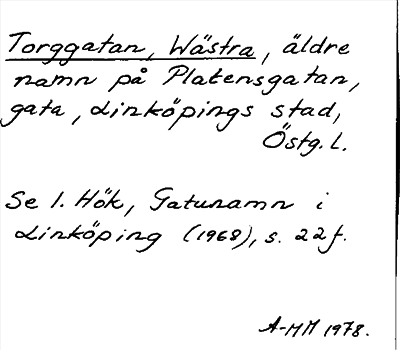 Torggatan, Wästra, äldre
namn på Platensgatan,
gata, Linköpings stad,
Östg. L.
Se I. Hök, Gatunamn i
Linköping (1968), s. 22 f.
A-MM 1978.